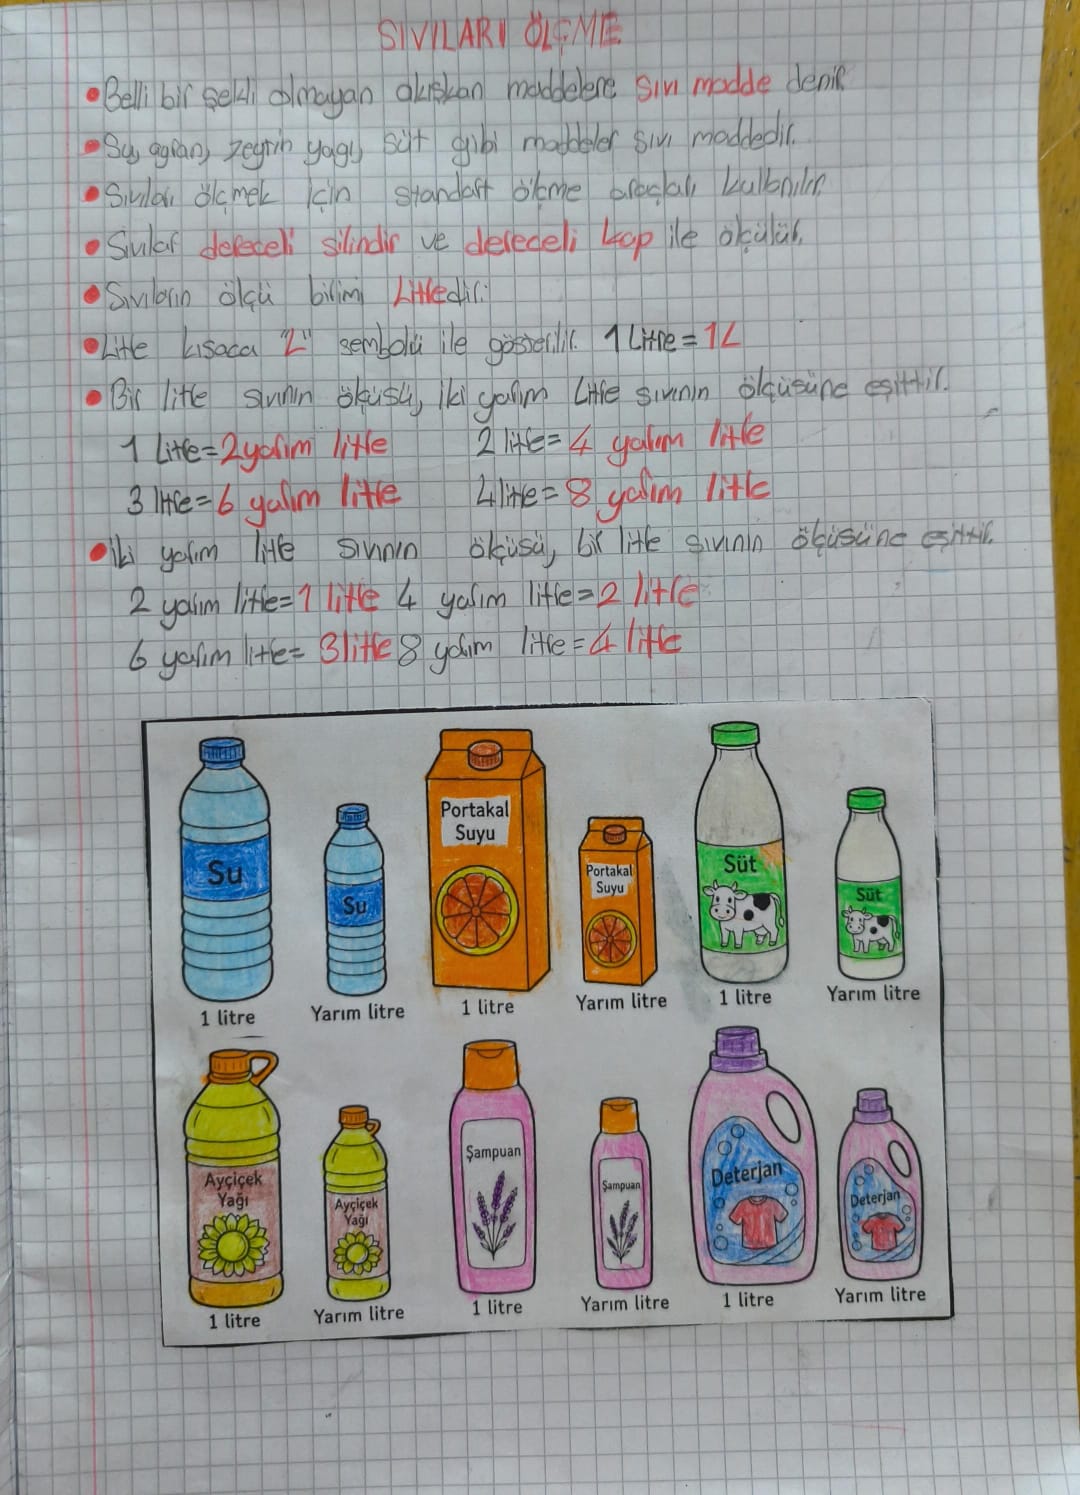 SIVILARI ÖLÇME
• Belli bir şekli olmayan akışkan maddelere sıvı madde denir
• Su, ayran, zeytin yağı, süt gibi maddeler sıvı maddedir.
• Sıvıları ölçmek için standart ölçme araçları kullanılır.
• Sıvılar dereceli silindir ve dereceli kap ile ölçülür.
• Sıvıların ölçü birimi Litredir.
• Litre kısaca "L" sembolü ile gösterilir. 1 Litre = 1L
• Bir litre sıvının ölçüsü, iki yarım Litre sıvının ölçüsüne eşittir.
1 Litre = 2 yarım litre 2 litre = 4 yarım litre
3 litre = 6 yarım litre 4 litre = 8 yarım litre
• İki yarım litre sıvının ölçüsü, bir litre sıvının ölçüsüne eşittir.
2 yarım litre = 1 litre 4 yarım litre = 2 litre
6 yarım litre = 3 litre 8 yarım litre = 4 litre
Su
Su
Portakal
Suyu
Portakal
Suyu
Süt
Süt
1 litre Yarım litre 1 litre Yarım litre 1 litre Yarım litre
Ayçiçek
Yağı
Ayçiçek
Yağı
Şampuan
Şampuan
Deterjan
Deterjan
1 litre Yarım litre 1 litre Yarım litre 1 litre Yarım litre